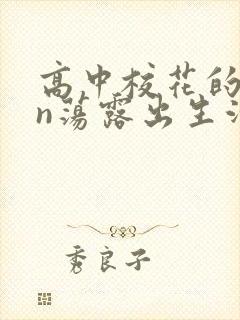 高中校花的
n荡露出生
秀良子